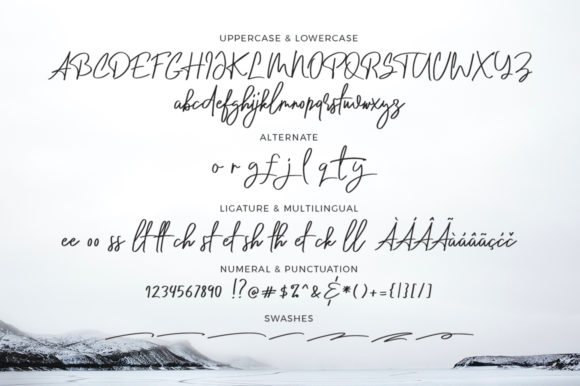 UPPERCASE & LOWERCASE
ABCDEFGHIJKLMNOPQRSTUVWXYZ
abcdefghijklmnopqrstuvwxyz
ALTERNATE
o r g f j l q t y
LIGATURE & MULTILINGUAL
ee oo ss lt tt ch st et sh th et ck ll ÀÁÂÃàáâãçćč
NUMERAL & PUNCTUATION
1234567890 !?@#$%^&&*()+={|}[/]
SWASHES